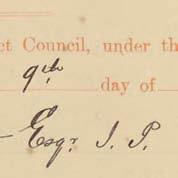 ct Council, under th
9th day of
Esqr J. P.